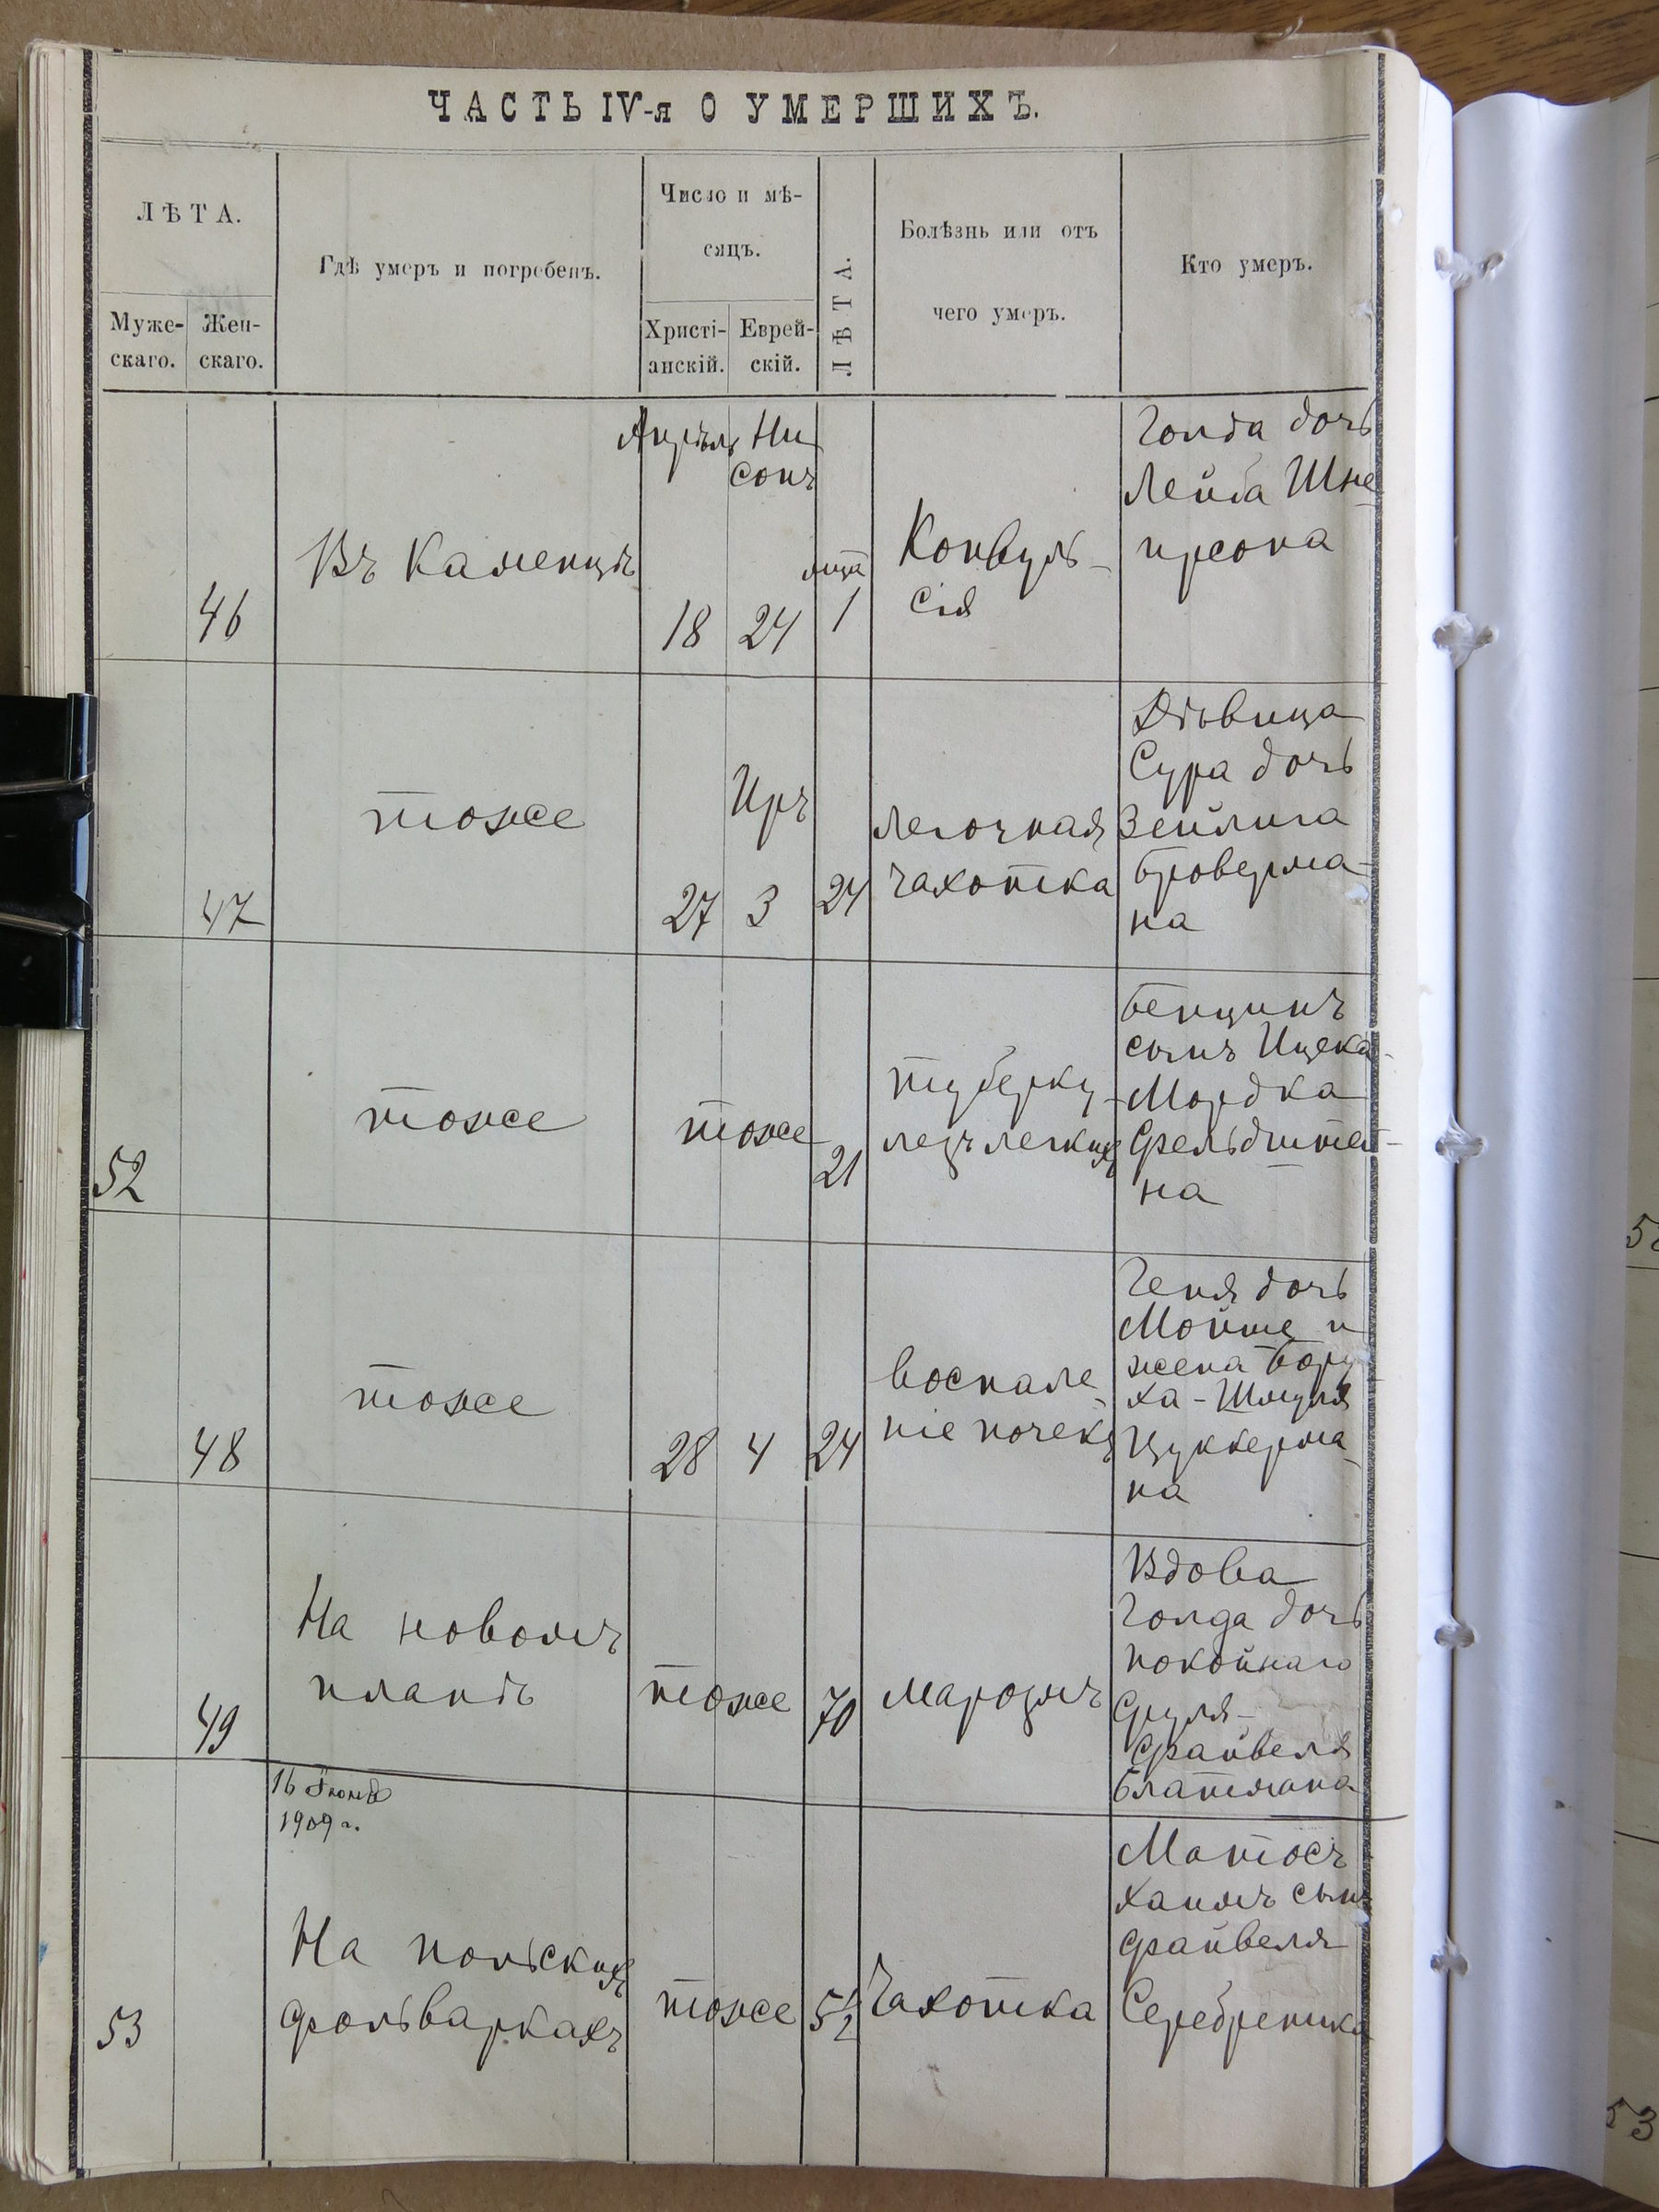 ЧАСТЬ IV-я О УМЕРШИХЪ.
ЛѢТА.
Муже-
скаго.
Жен-
скаго.
Гдѣ умеръ и погребенъ.
Число и мѣ-
сяцъ.
Христі-
анскій.
Еврей-
скій.
ЛѢТА.
Болѣзнь или отъ
чего умеръ.
Кто умеръ.
46
Въ Каменцѣ
Апрѣль
18
Ни
сонъ
24
1
Конвуль-
сія
Голда дочь
Лейба Шне-
ирсона
47
тоже
27
Иръ
3
24
легочная
чахотка
Дѣвица
Сура дочь
Зейлига
Броверма-
на
52
тоже
тоже
21
туберку-
лезъ легкихъ
Бенционъ
сынъ Ицека-
Мордка
Фельдштей-
на
48
тоже
28
4
24
воспале-
ніе почекъ
Геня дочь
Мойше и
жена Бору
ха-Шмуля
Цуккерма-
на
49
На новомъ
планѣ
тоже
70
маразмъ
Вдова
Голда дочь
покойнаго
Сруля-
Файвеля
Блатмана
16 Іюня
1909 г.
53
На польскихъ
фольваркахъ
тоже
Чахотка
Матосъ
Хаимъ сынъ
Файвеля
Серебреника
53